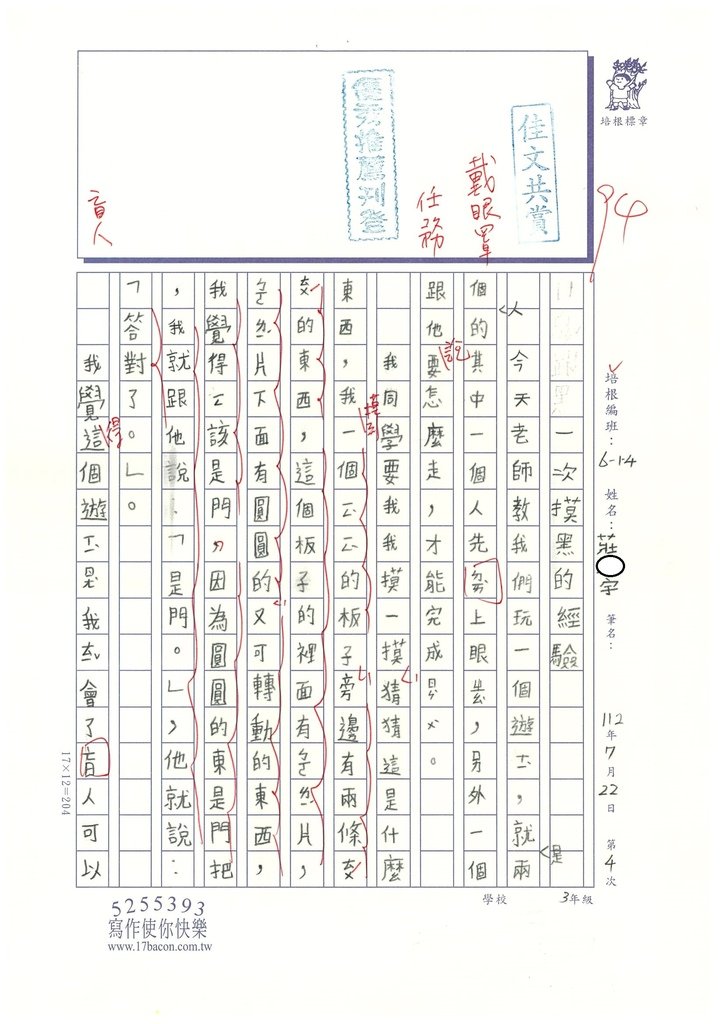 培根標章
94
佳文共賞
戴眼罩
任務
優秀推薦刊登
盲人
培根編班：6-1-4 姓名：莊宇 筆名： 112年7月22日 第4次
3年級
學校
一次摸黑的經驗
今天老師教我們玩一個遊ㄒ，就兩
是
個的其中一個人先ㄉㄞ上眼ㄓㄠ，另外一個
人
跟他要怎麼走，才能完成ㄖㄣㄨ。
說
我同學要我我摸一摸猜猜這是什麼
東西，我一個ㄧㄥㄧㄥ的板子旁邊有兩條
摸到
的東西，這個板子的裡面有
片下面有圓圓的又可轉動的東西，
我覺得ㄧㄥ該是門，因為圓圓的東是門把
，我就跟他說：「是門。」，他就說：
「答對了。」。
我覺這個遊ㄒㄧ是我ㄊㄧ會了盲人可以
得
17×12=204
5255393
寫作使你快樂
www.17bacon.com.tw